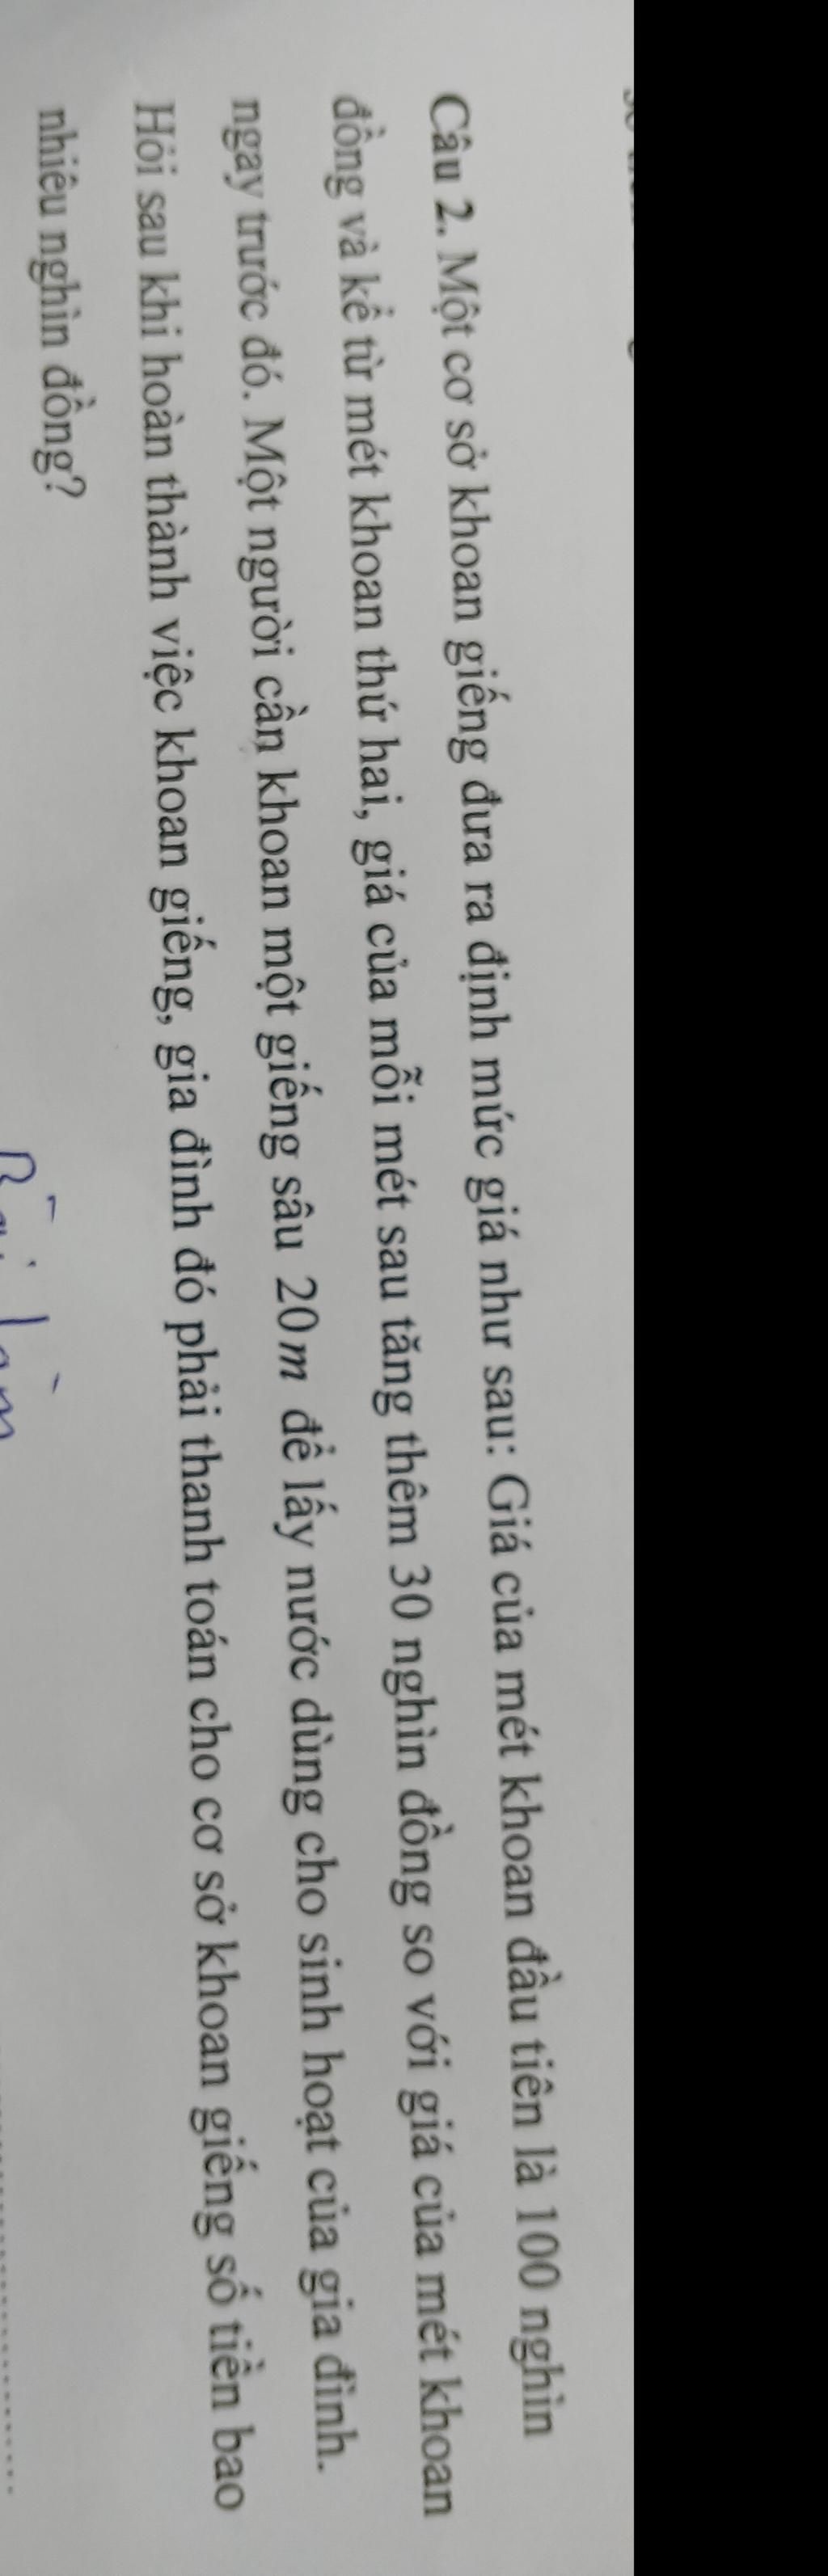 Câu 2. Một cơ sở khoan giếng đưa ra định mức giá như sau: Giá của mét khoan đầu tiên là 100 nghìn
đồng và kể từ mét khoan thứ hai, giá của mỗi mét sau tăng thêm 30 nghìn đồng so với giá của mét khoan
ngay trước đó. Một người cần khoan một giếng sâu 20m để lấy nước dùng cho sinh hoạt của gia đình.
Hỏi sau khi hoàn thành việc khoan giếng, gia đình đó phải thanh toán cho cơ sở khoan giếng số tiền bao
nhiêu nghìn đồng?